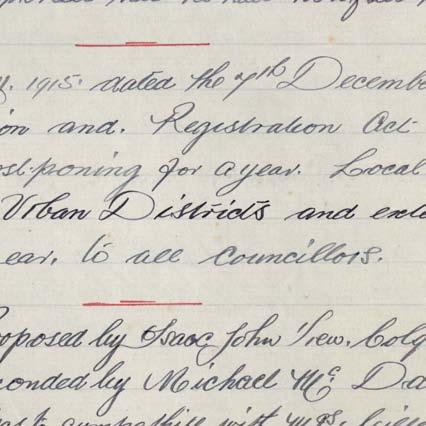 1915. dated the 7th Decembe
ion and. Registration Act
ost-poning for a year. Local
Urban Districts and exte
ear, to all councillors.
roposed by Isaac John Colq
conded by Michael Mc. Da
sympathise with Mrs.